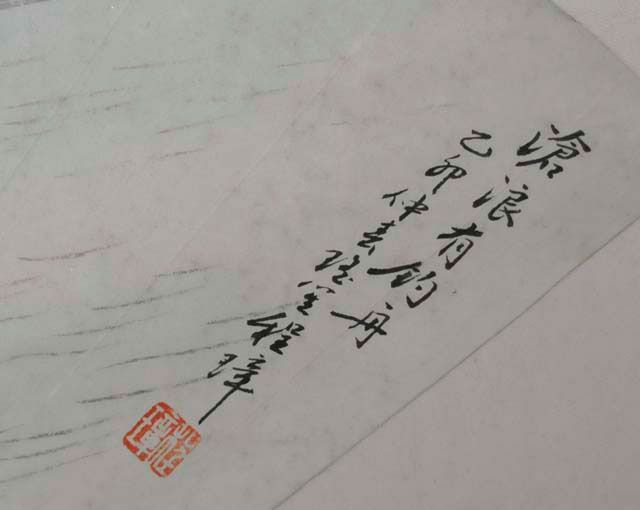 滄浪有釣舟
乙卯仲春瑶笙程璋